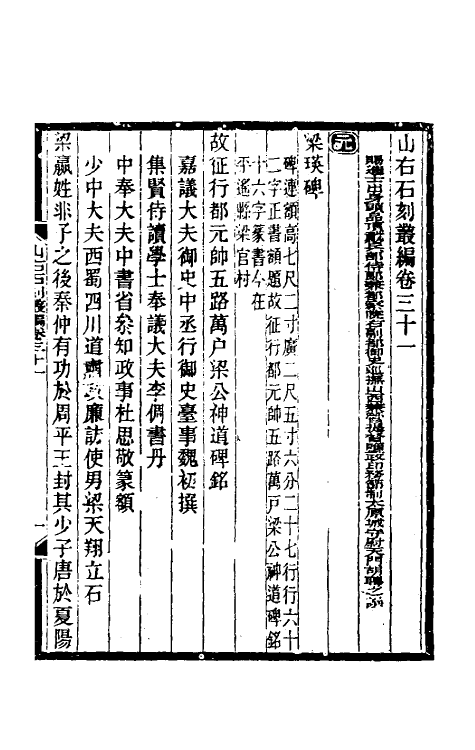 山右石刻叢編卷三十一
賜進士出身頭品頂戴兵部侍郎兼都察院右副都御史巡撫山西兼提督鹽政印務節制太原城守尉天門胡聘之譔
元
梁瑛碑
碑連額高七尺二寸廣二尺五寸六分二十七行行六十
二字正書額題故征行都元帥五路萬戸梁公神道碑銘
十六字篆書今在
平遙縣梁官村
故征行都元帥五路萬戸梁公神道碑銘
嘉議大夫御史中丞行御史臺事魏初撰
集賢侍讀學士奉議大夫李倜書丹
中奉大夫中書省叅知政事杜思敬篆額
少中大夫西蜀四川道肅政廉訪使男梁天翔立石
梁嬴姓非子之後秦仲有功於周平王封其少子唐於夏陽
山右石刻叢編卷三十一
一